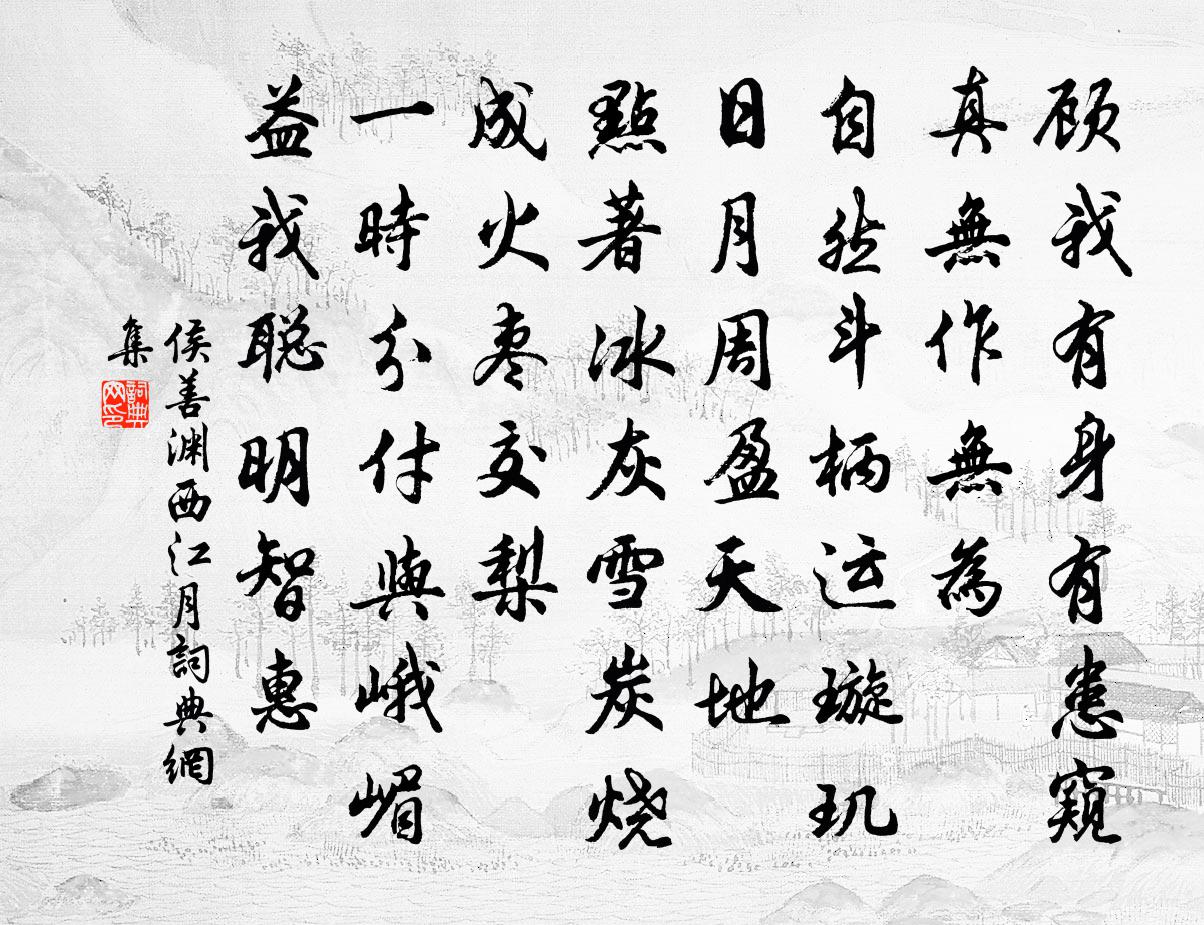 顾我有身有患窥
真無作無為
自然斗柄运璇玑
日月周盈天地
點著冰灰雪炭烧
成火枣交梨
一時分付與峨嵋
益我聪明智惠
侯善渊西江月詞典網
集
詞典網印